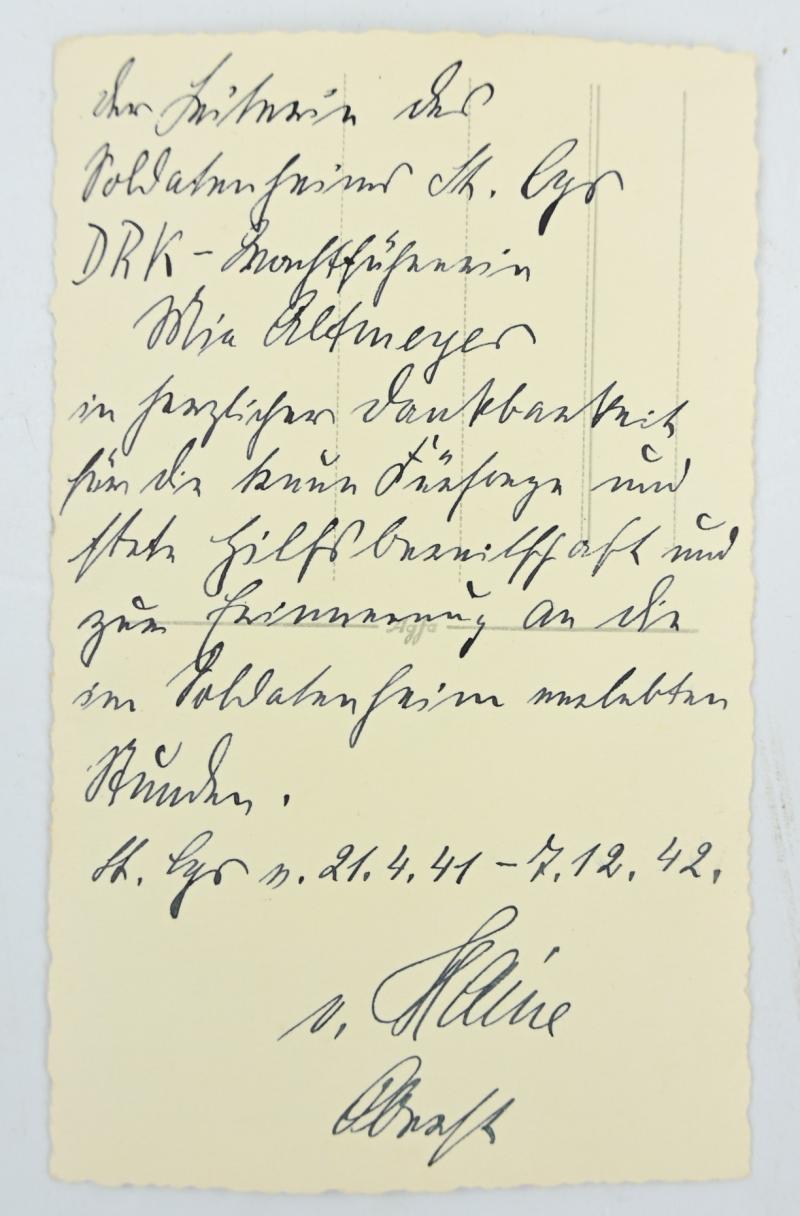 der Leiterin des
Soldatenheims St. Cyr
DRK-Wachtführerin
Mia Altmeyer
in herzlicher Dankbarkeit
für die treue Fürsorge und
stete Hilfsbereitschaft und
zur Erinnerung an die
im Soldatenheim verlebten
Stunden.
St. Cyr v. 21.4.41 - 7.12.42.
v.
Oberst